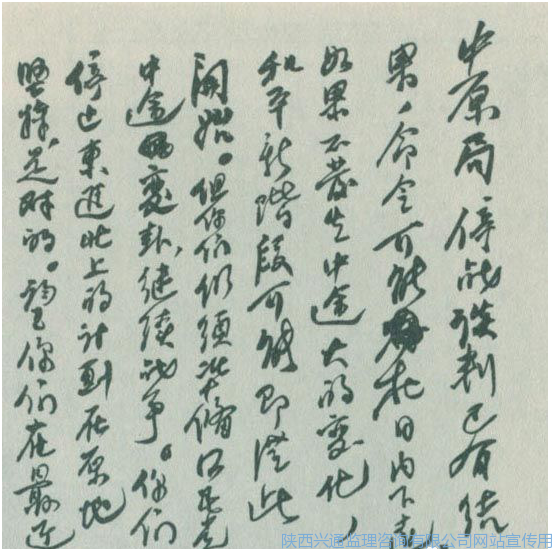 中原局停战谈判已有结
果,命令可能於日内下
如果不發生中途大的變化,
和平新階段可能即從此
開始。但你们仍须准備
中途變卦,继续战争。你们
停止東進北上的计劃在原地
是对的。你们在最近
陕西兴通监理咨询有限公司网站宣传用